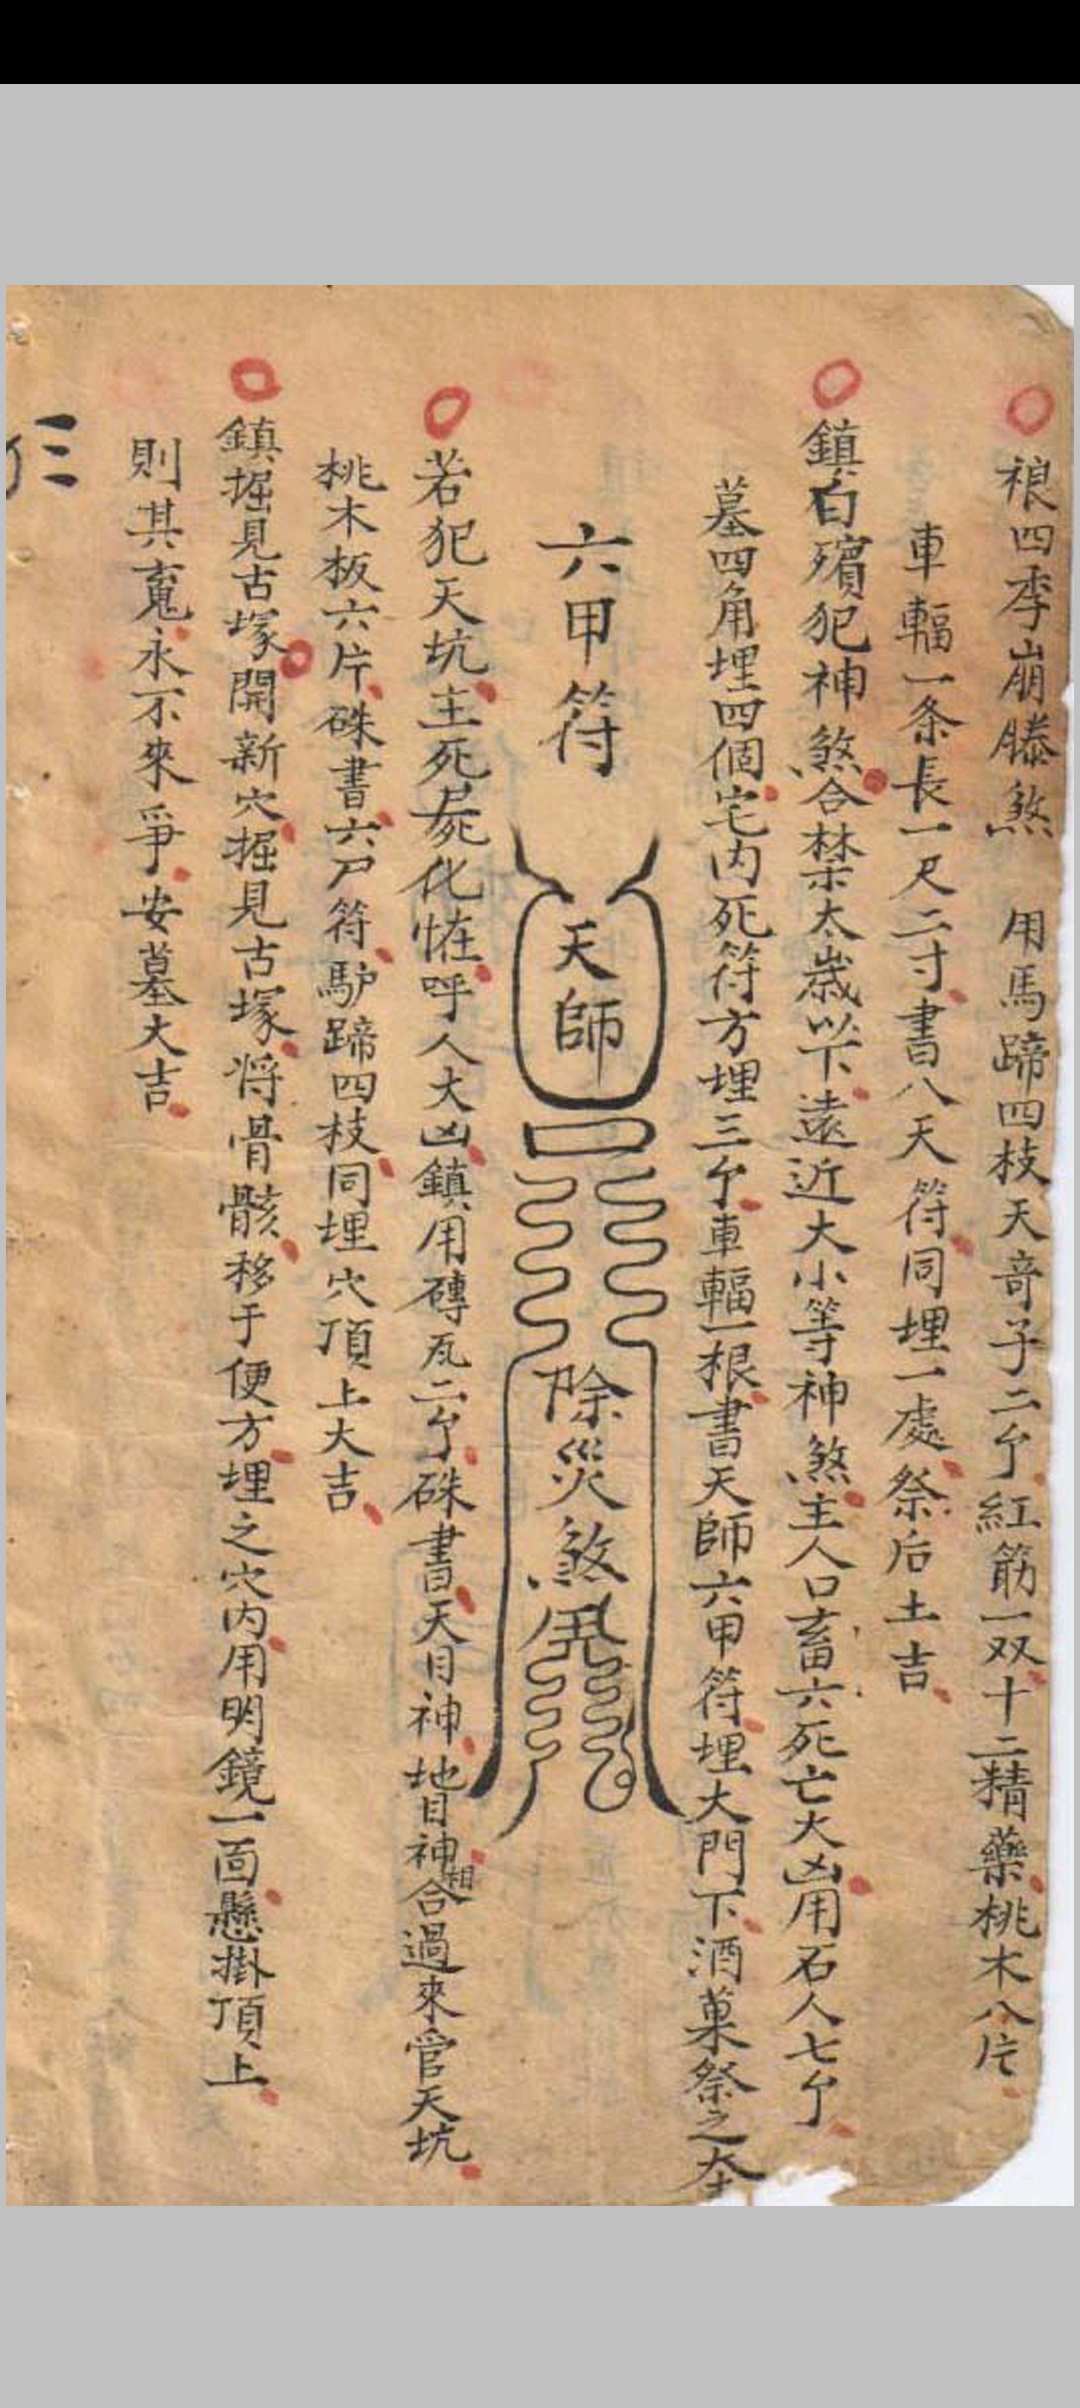 禓四季崩滕煞 用馬蹄四枝天竒子二个紅筋一双十二精藥桃木八片
車輻一条長一尺二寸書八天符同埋一處祭后土吉
鎮白殯犯神煞合禁太歲以下遠近大小等神煞主人口畜六死亡大凶用石人七个
墓四角埋四個宅内死符方埋三个車輻一根書天師六甲符埋大門下酒菓祭之大
六甲符
天師
除災煞鬼
若犯天坑主死屍化怪呼人大凶鎮用磚瓦二个硃書天目神地目神相合過來管天坑
桃木板六片硃書六尸符馿蹄四枝同埋穴頂上大吉
鎮掘見古塚開新穴掘見古塚将骨骸移于便方埋之穴内用明鏡一面懸掛頂上
則其䰟永不來爭安墓大吉